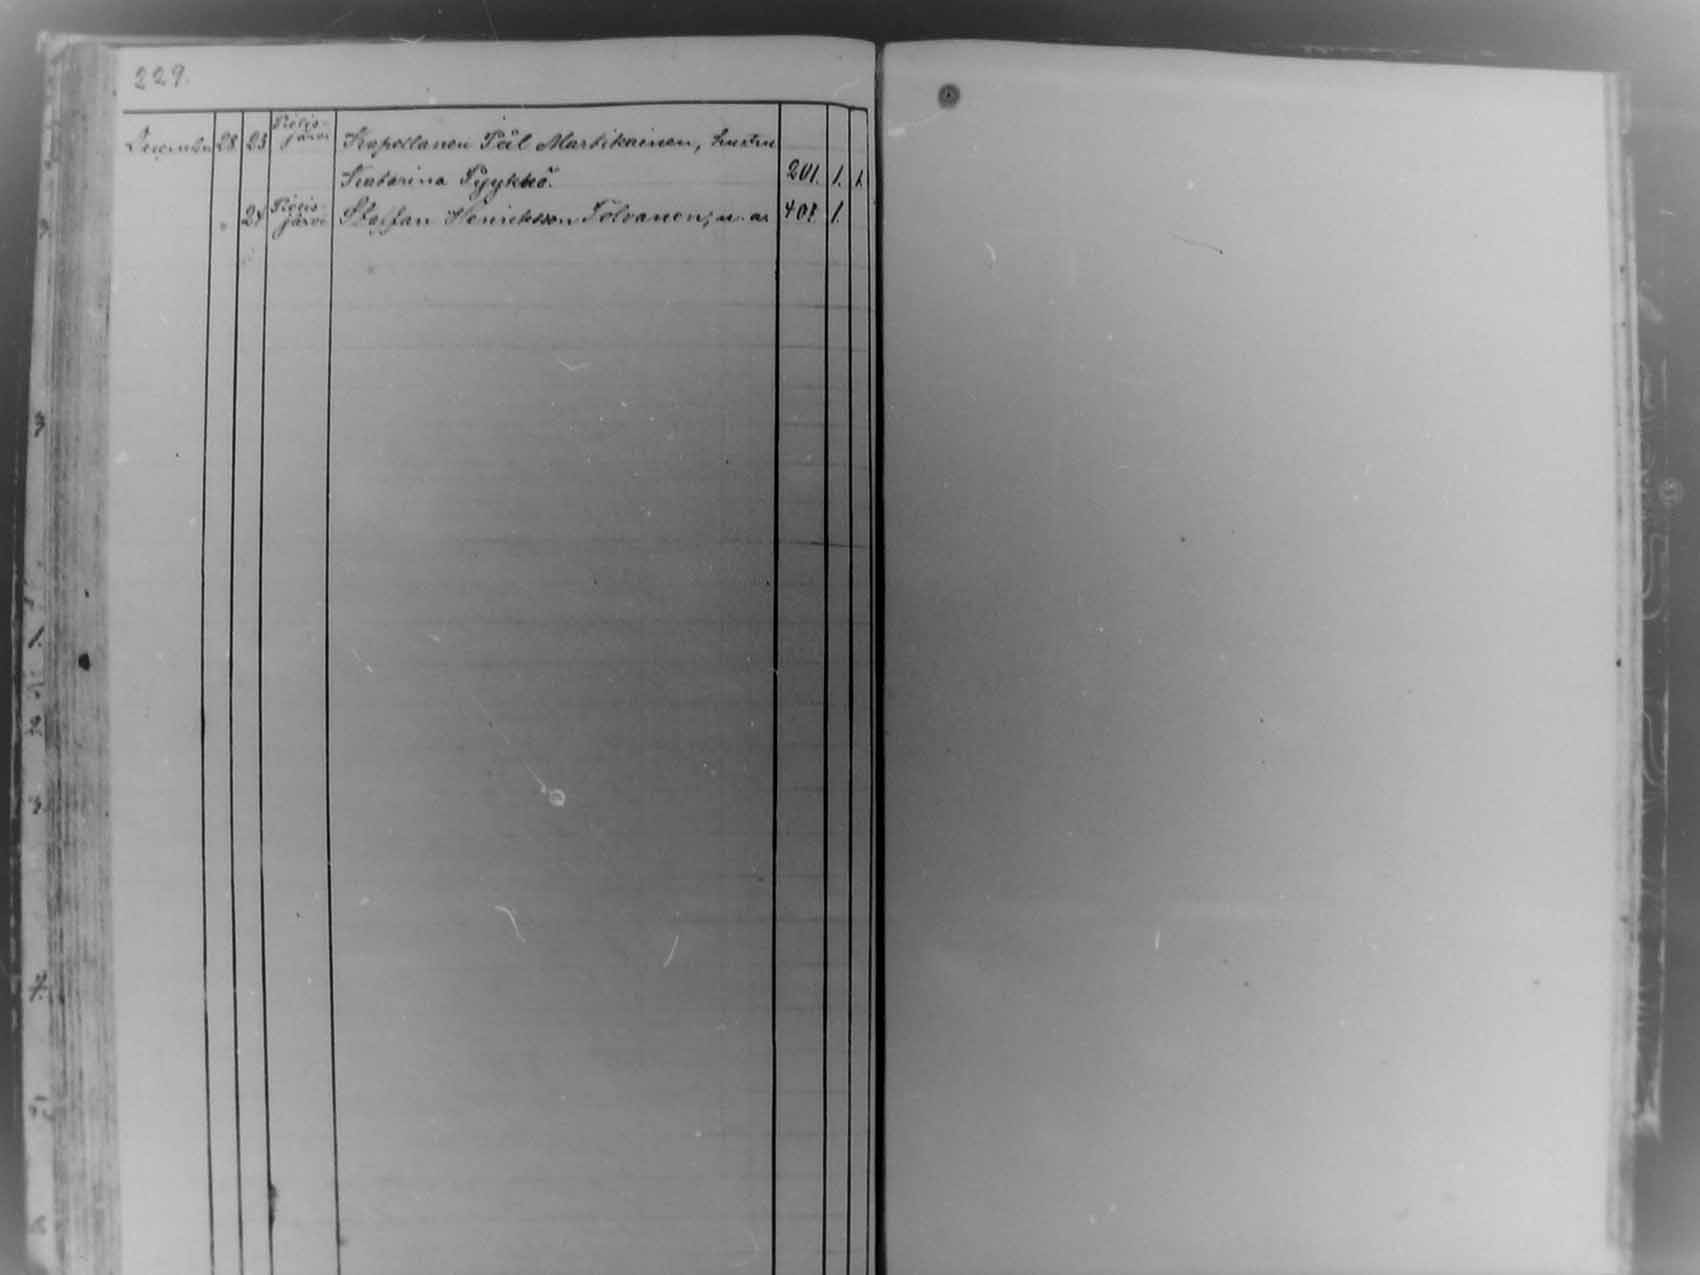 229.
December 28. 23. Pielis-
järvi Kapellanen Pål Martikainen, hustru
Katarina Pyykkö. 201. 1. 1.
" 24 Pielis-
järvi Staffan Henriksson Tolvanen, 407. 1.